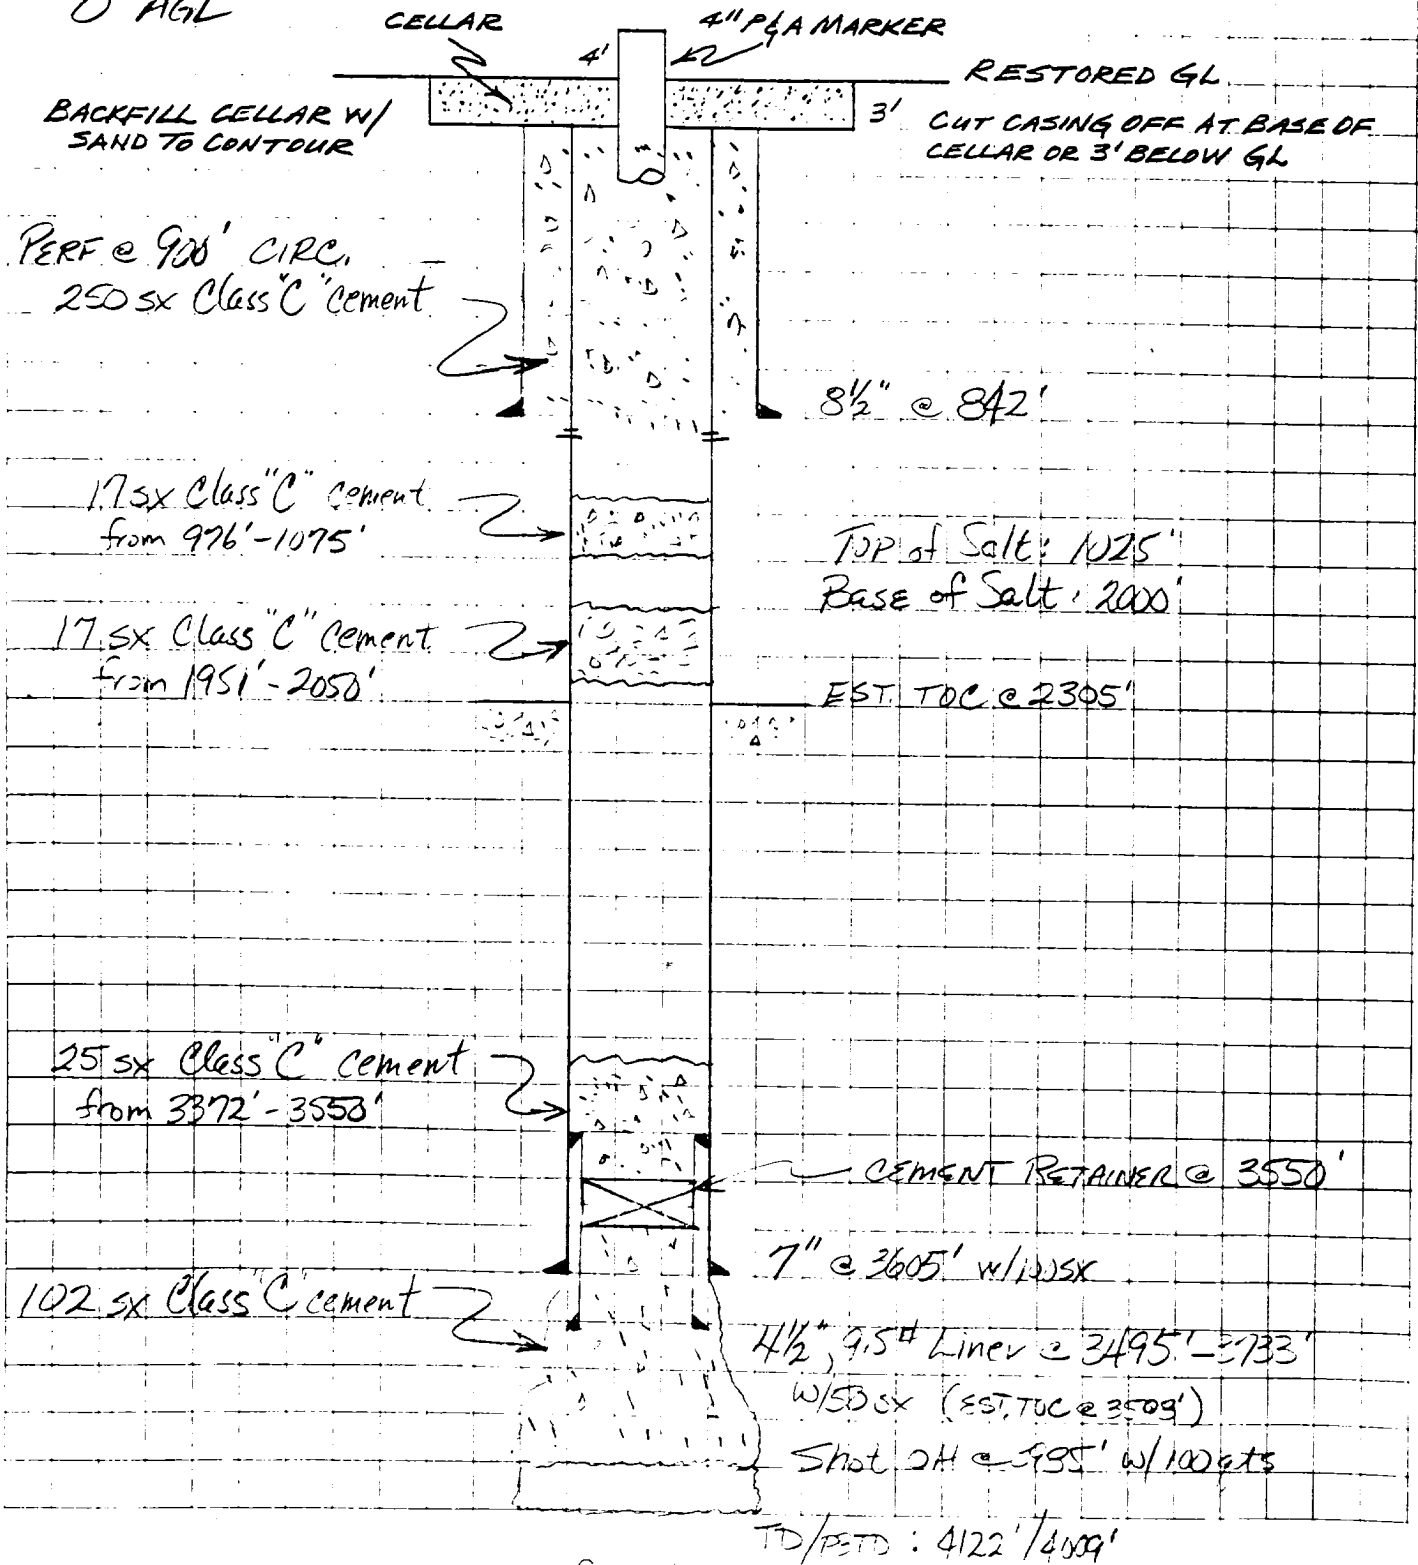 0' AGL
CELLAR
4" P&A MARKER
4'
RESTORED GL
BACKFILL CELLAR W/
SAND TO CONTOUR
3'
CUT CASING OFF AT BASE OF
CELLAR OR 3' BELOW GL
PERF @ 900' CIRC.
250 sx Class "C" cement
8½" @ 842'
17 sx Class "C" cement
from 976'-1075'
Top of Salt: 1025'
Base of Salt: 2000'
17 sx Class "C" cement
from 1951'-2050'
EST. TOC @ 2305'
25 sx Class "C" cement
from 3372'-3550'
CEMENT RETAINER @ 3550'
7" @ 3605' w/100sx
102 sx Class "C" cement
4½", 9.5# Liner @ 3495'-3733'
w/50 sx (EST. TOC @ 3509')
Shot OH @ w/100 qts
TD/PBTD: 4122'/4009'